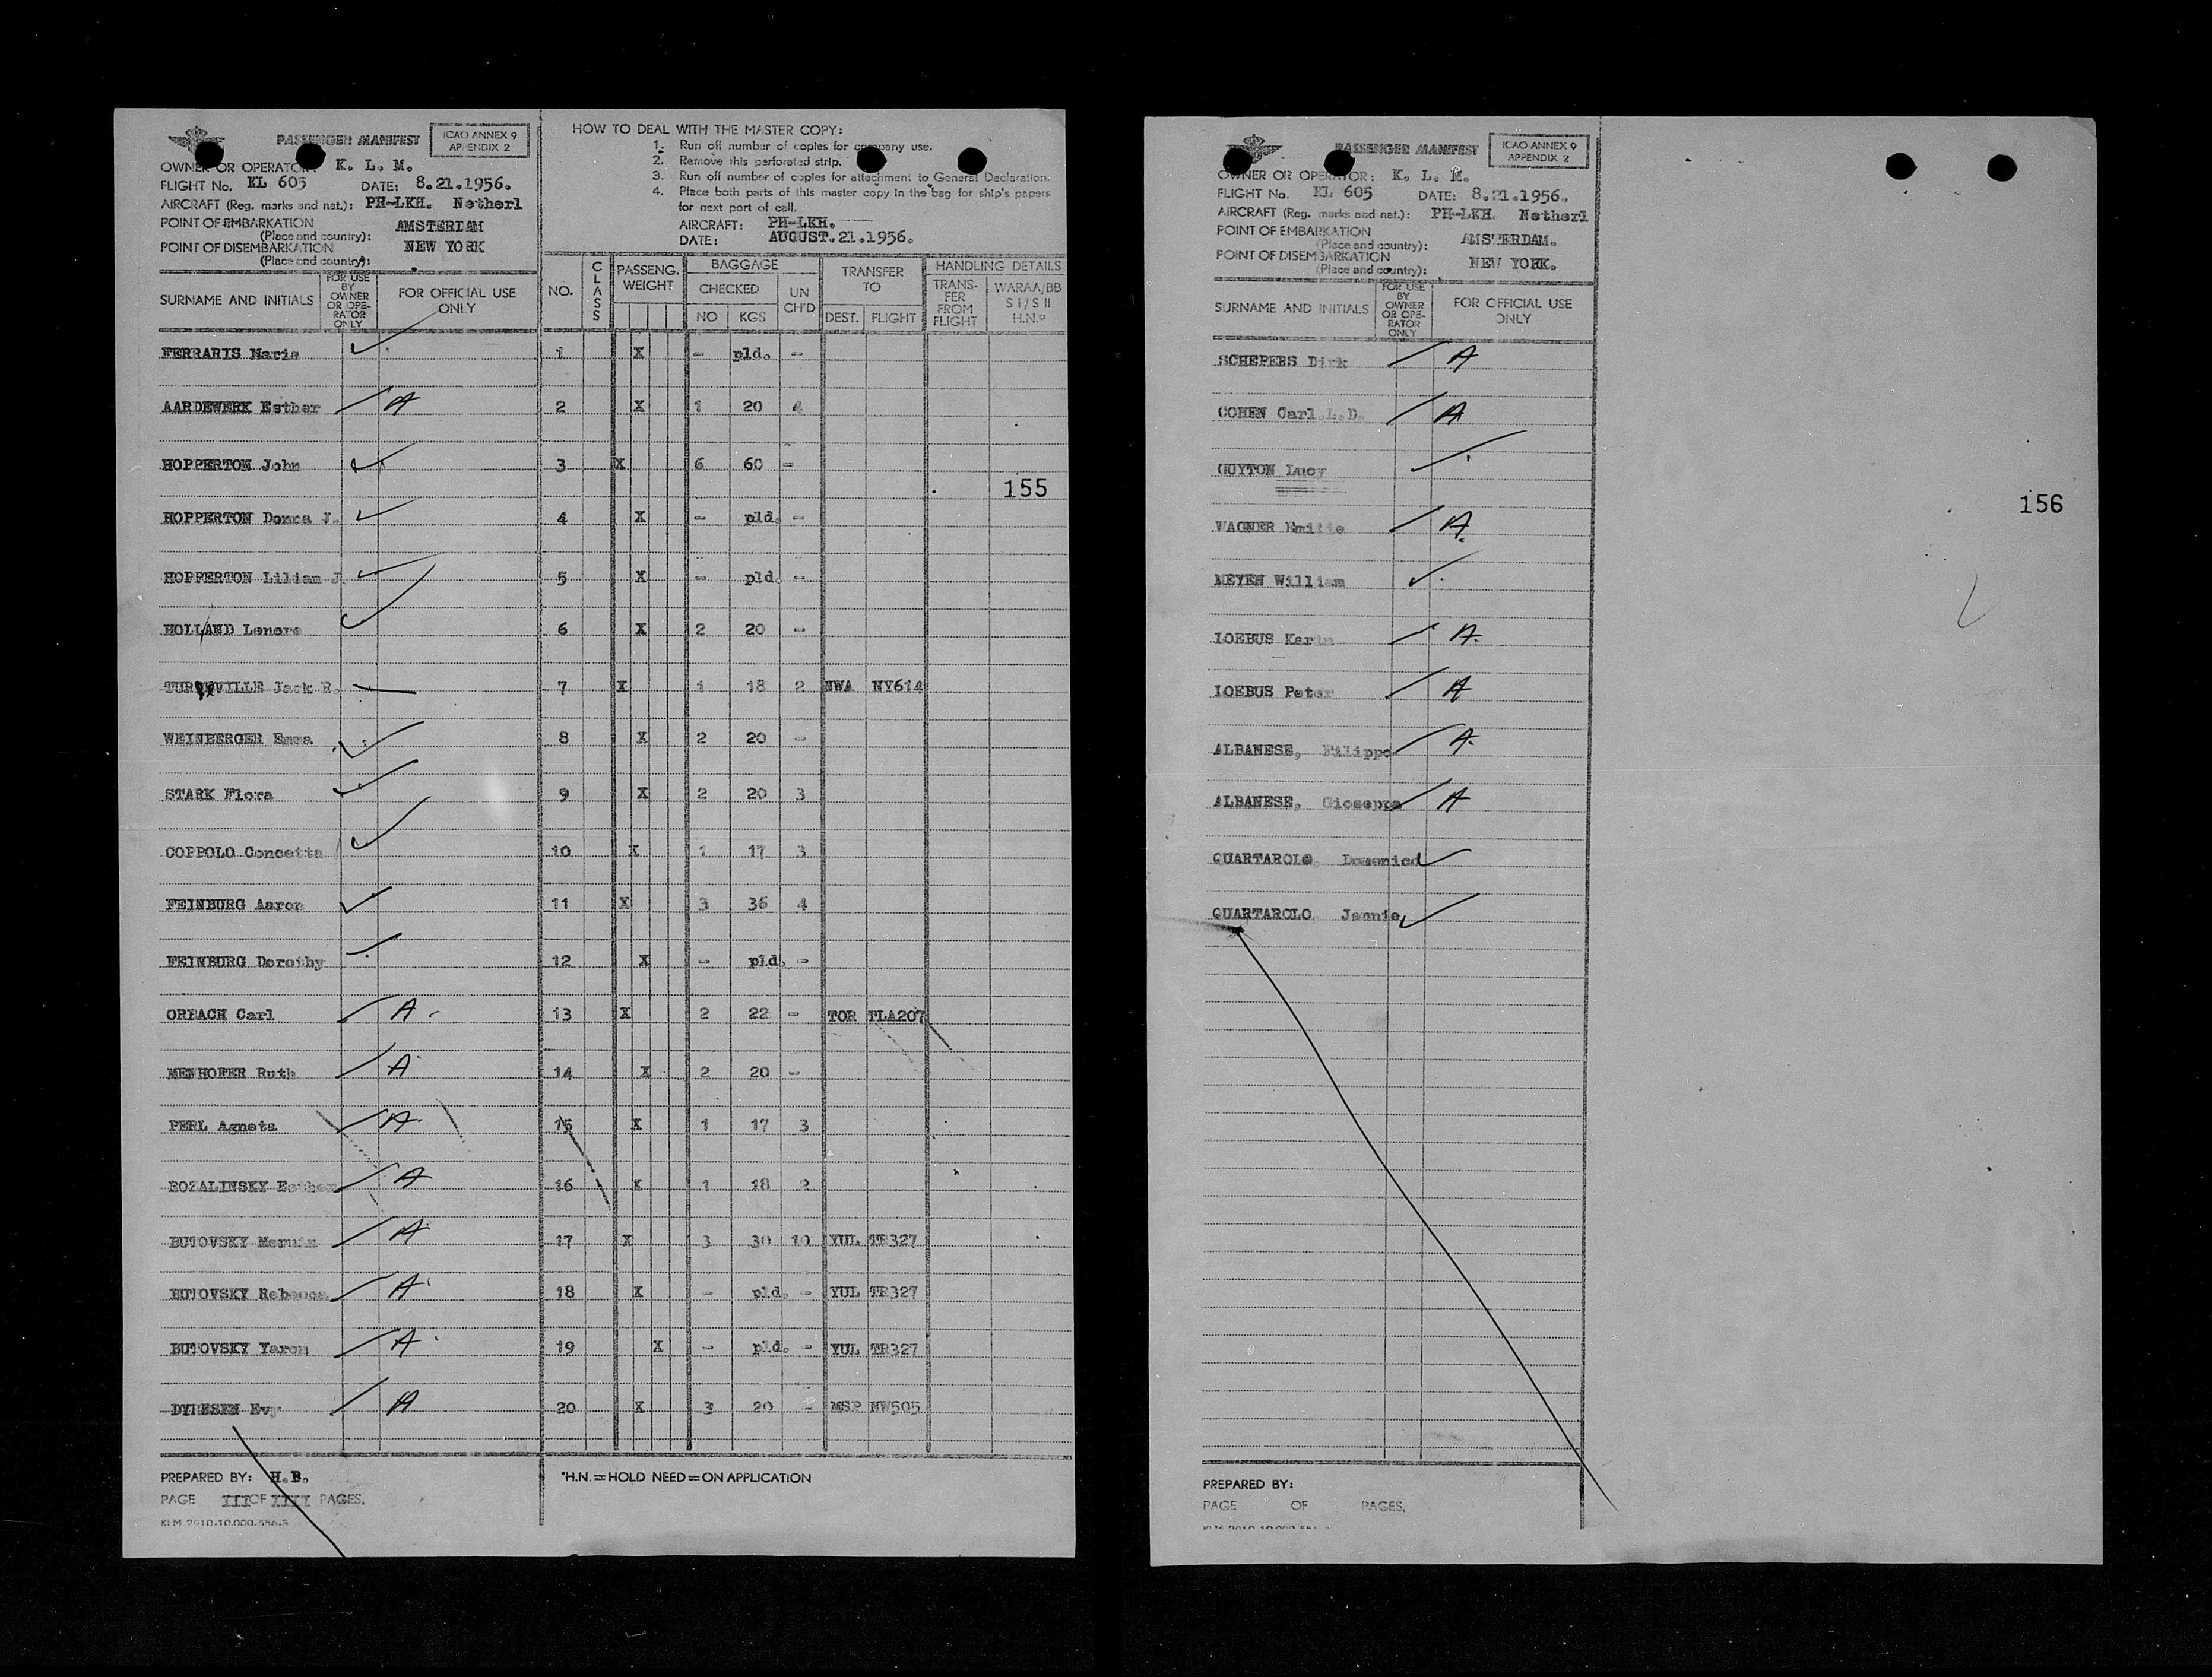 PASSENGER MANIFEST
ICAO ANNEX 9
APPENDIX 2
OWNER OR OPERATOR: K. L. M.
FLIGHT No. KL 605 DATE: 8.21.1956.
AIRCRAFT (Reg. marks and nat.): PH-LKH. Netherl
POINT OF EMBARKATION AMSTERDAM
(Place and country):
POINT OF DISEMBARKATION NEW YORK
(Place and country):
HOW TO DEAL WITH THE MASTER COPY:
1. Run off number of copies for company use.
2. Remove this perforated strip.
3. Run off number of copies for attachment to General Declaration.
4. Place both parts of this master copy in the bag for ship's papers
for next port of call.
AIRCRAFT: PH-LKH.
DATE: AUGUST.21.1956.
SURNAME AND INITIALS
FOR USE BY OWNER OR OPE- RATOR ONLY
FOR OFFICIAL USE ONLY
NO. CLASS PASSENG. WEIGHT BAGGAGE CHECKED NO KGS UN CH'D TRANSFER TO DEST. FLIGHT HANDLING DETAILS TRANS- FER FROM FLIGHT WARAA/BB S I / S II H.N.°
FERRARIS Maria 1 X - pld. -
AARDEWERK Esther A 2 X 1 20 4
HOPPERTON John 3 X 6 60 -
155
HOPPERTON Donna J. 4 X - pld. -
HOPPERTON Lilian J 5 X - pld. -
HOLLAND Lenore 6 X 2 20 -
Jack R. 7 X 1 18 2 NWA NY614
WEINBERGER Emma 8 X 2 20 -
STARK Flora 9 X 2 20 3
COPPOLO Concetta 10 X 1 17 3
FEINBURG Aaron 11 X 3 36 4
FEINBURG Dorothy 12 X - pld. -
ORBACH Carl A 13 X 2 22 - TOR TLA207
MENHOFER Ruth A 14 X 2 20 -
PERL Agneta A 15 X 1 17 3
ROZALINSKY Esther A 16 X 1 18 2
BUTOVSKY A 17 X 3 30 10 YUL TR327
BUTOVSKY Rebecca A 18 X - pld. - YUL TR327
BUTOVSKY Yaron A 19 X - pld. - YUL TR327
DYRESEN Evy A 20 X 3 20 - MSP NW505
PREPARED BY: H.B.
PAGE III OF IIII PAGES.
*H.N. = HOLD NEED = ON APPLICATION
PASSENGER MANIFEST
ICAO ANNEX 9
APPENDIX 2
OWNER OR OPERATOR: K. L. M.
FLIGHT No. KL 605 DATE: 8.21.1956.
AIRCRAFT (Reg. marks and nat.): PH-LKH Netherl
POINT OF EMBARKATION AMSTERDAM.
(Place and country):
POINT OF DISEMBARKATION NEW YORK.
(Place and country):
SURNAME AND INITIALS
FOR USE BY OWNER OR OPE- RATOR ONLY
FOR OFFICIAL USE ONLY
SCHEPERS Dirk A
COHEN Carl.L.D. A
GUYTON Lucy
156
WAGNER Emilie A
MEYEN William
LOEBUS Karin A
LOEBUS Peter A
ALBANESE, Filippo A
ALBANESE, Gioseppe A
QUARTAROLO, Domenico
QUARTAROLO Jennie
PREPARED BY:
PAGE OF PAGES.